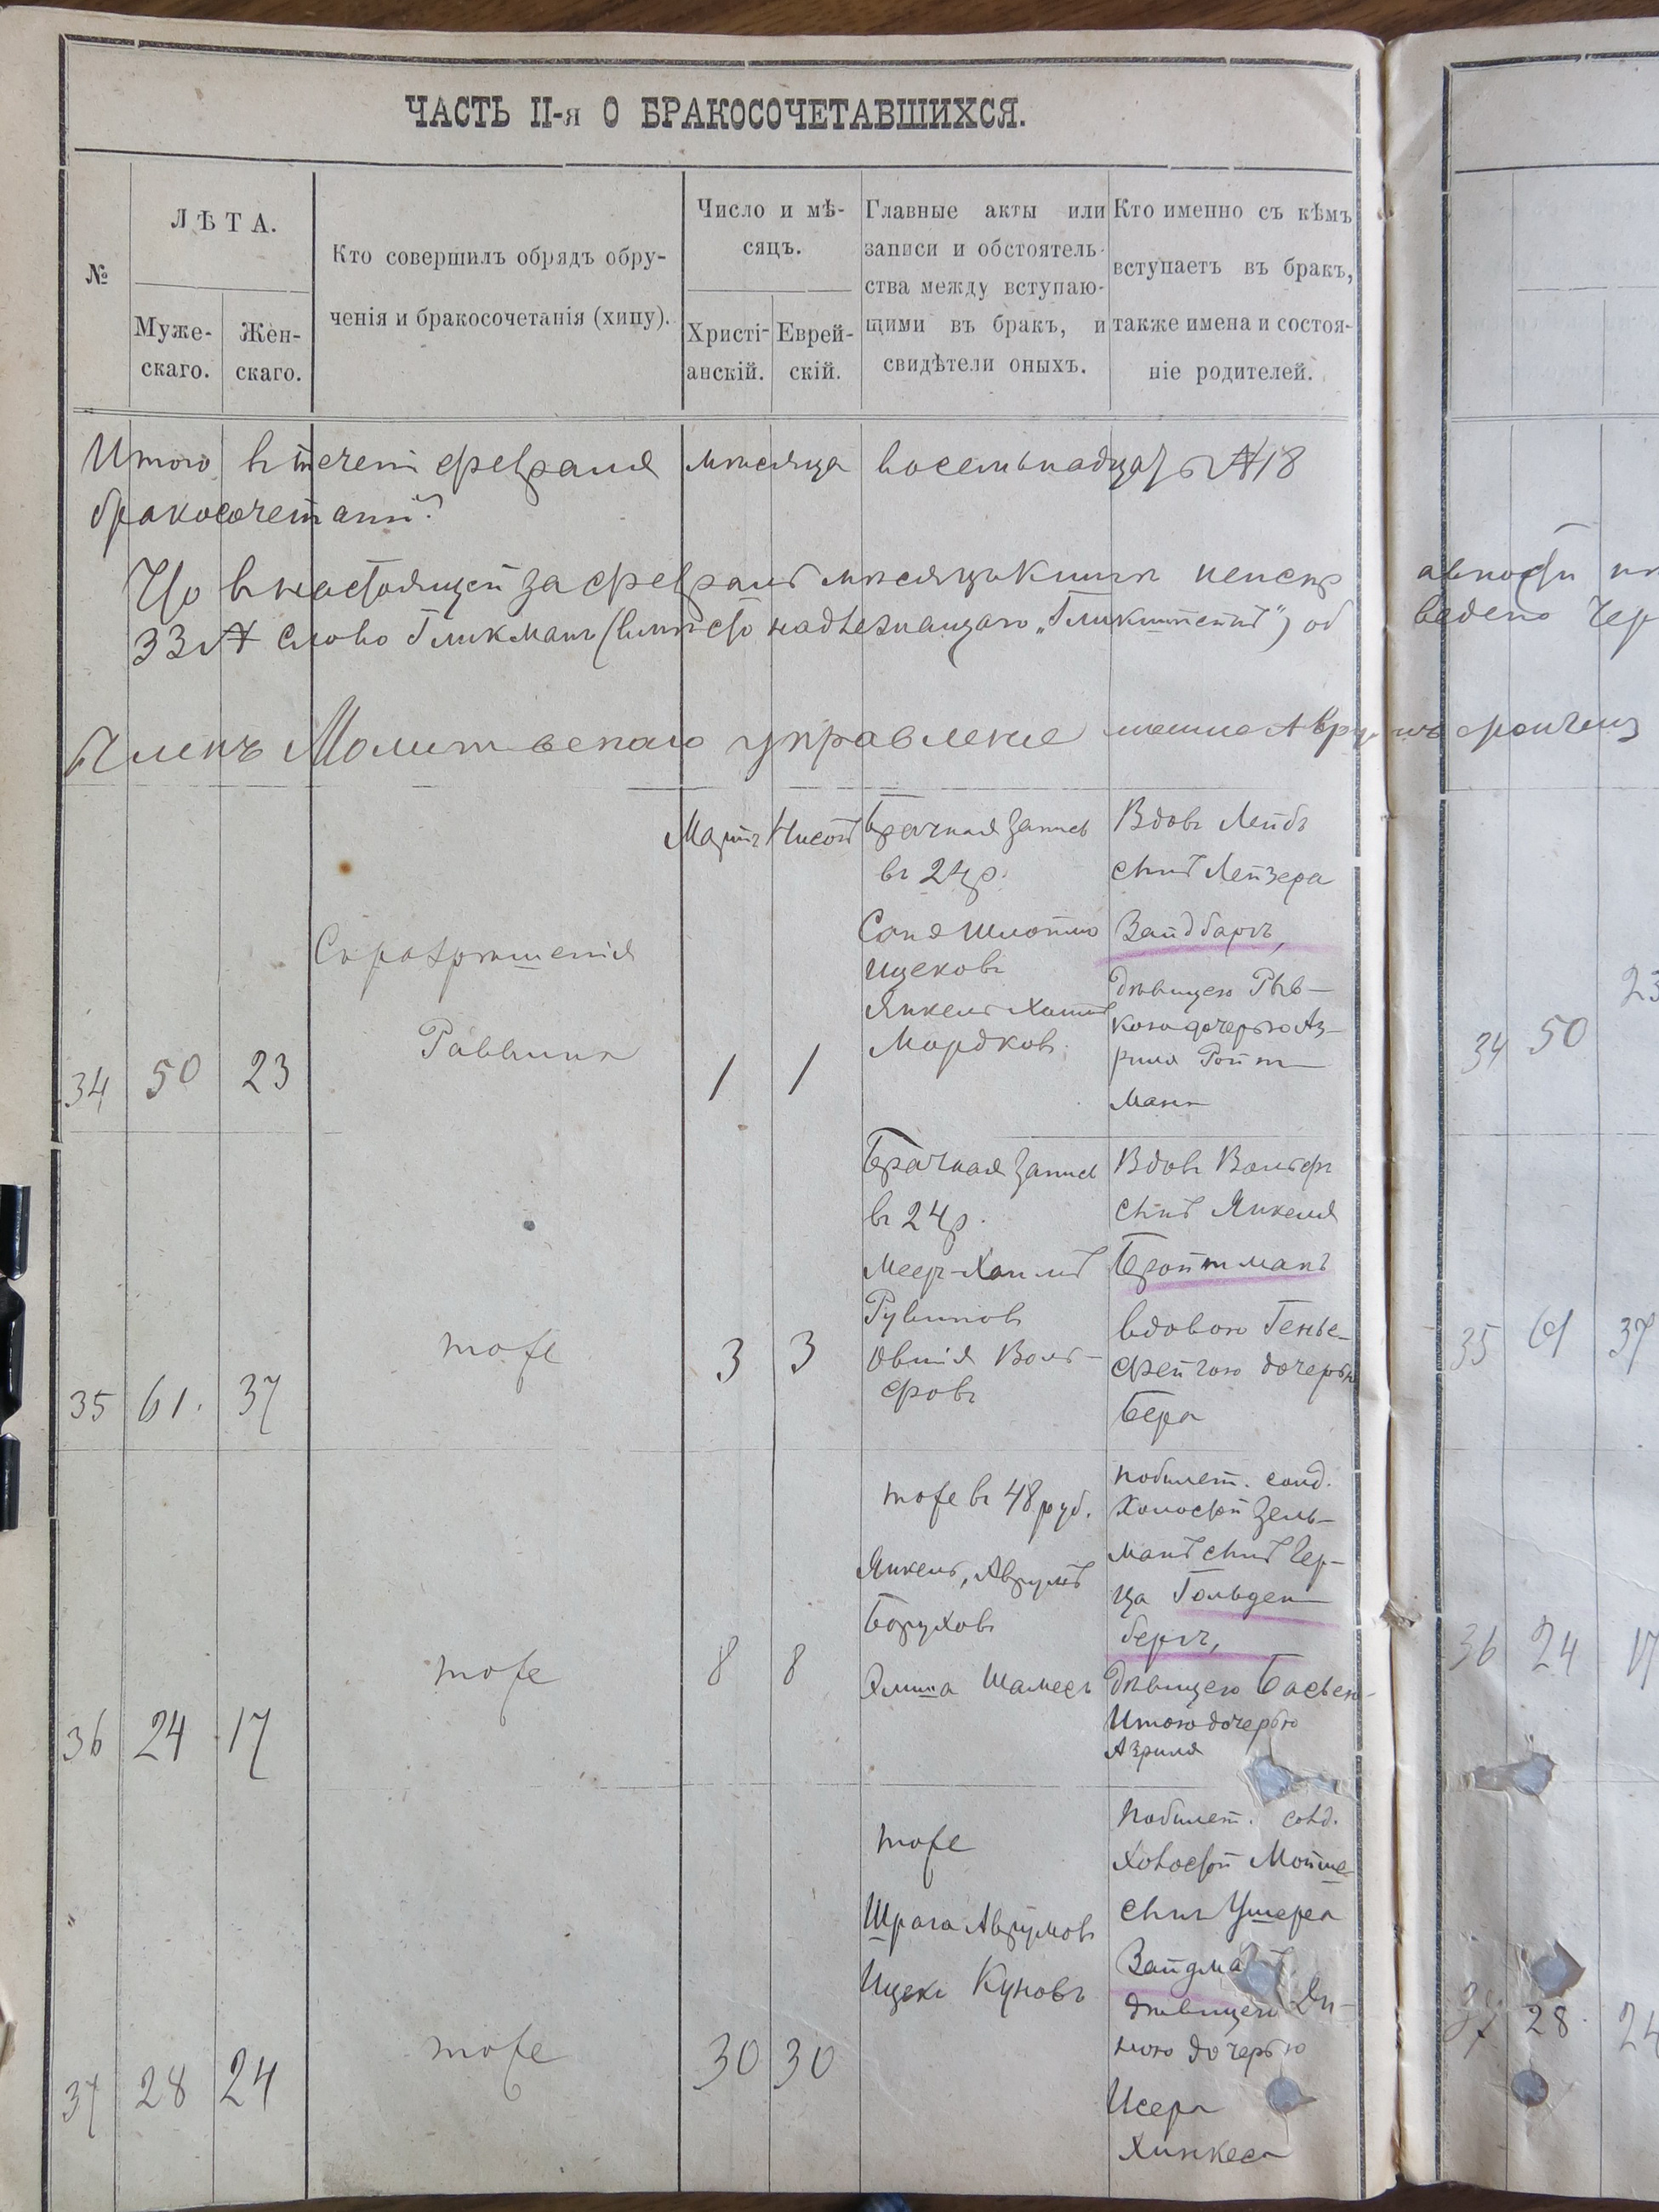 ЧАСТЬ II-я О БРАКОСОЧЕТАВШИХСЯ.
№
ЛѢТА.
Муже-
скаго.
Жен-
скаго.
Кто совершилъ обрядъ обру-
ченія и бракосочетанія (хипу).
Число и мѣ-
сяцъ.
Христі-
анскій.
Еврей-
скій.
Главные акты или
записи и обстоятель-
ства между вступаю-
щими въ бракъ, и
свидѣтели оныхъ.
Кто именно съ кѣмъ
вступаетъ въ бракъ,
также имена и состоя-
ніе родителей.
Итого в течен февраля мѣсяца восемьнадцать №18
бракосочетаній
Что в настоящей за февраль мѣсяцъ книги
33 № слово Гликманъ (вмѣсто надлежащаго „Гликштейнъ") об
Членъ Молитвенаго управление
Мартъ Нисонъ
34 50 23
Съ разрѣшенія
Раввина
1 1
Брачная запись
въ 24 р.
Соня Шлотмо
Ицековъ
Янкель Хаимъ
Мордковъ
Вдовъ Лейбъ
сынъ Лейзера
Зайдбаргъ,
дѣвицею Рыв-
кою дочерью Аз-
рила Ройт-
мана
35 61. 37
тоже
3 3
Брачная запись
въ 24 р.
Меер-Хаимъ
Рувиновъ
Овшія Воль-
фовъ
Вдовъ Вольфъ
сынъ Янкеля
Бройтманъ
вдовою Генье-
Фейгою дочерью
Бера
36 24 17
тоже
8 8
тоже въ 48 руб.
Янкель, Аврумъ
Боруховъ
Элиша Шамесъ
по билет. солд.
Холостой Зель-
манъ сынъ Гер-
ца Гольден-
бергъ,
Дѣвицею Басьею-
Итою дочерью
Азриля
37 28 24
тоже
30 30
тоже
Шрага Аврумовъ
Ицекъ Куновъ
по билет. солд.
Холостой Мойше
сынъ Ушера
Зайдма
дѣвицею Ди-
ною дочерью
Исера
Хинкеса
23
34 50
35 61 37
36 24 17
28 24